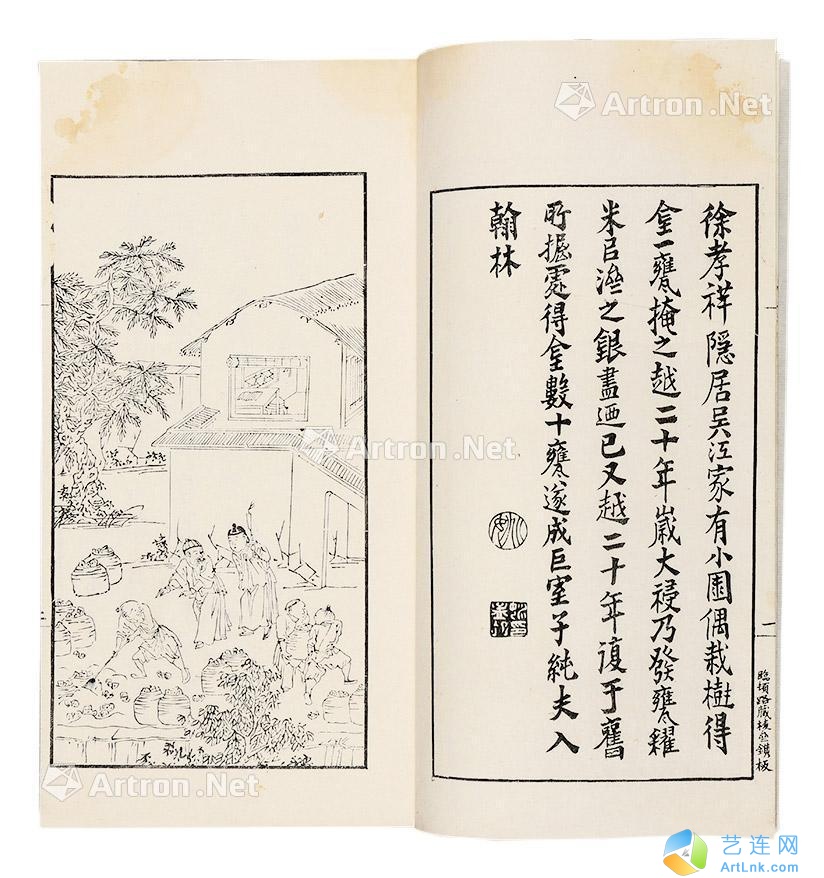 徐孝祥隱居吴江家有小園偶栽樹得
金一甕掩之越二十年歲大祲乃發甕糴
米㠯濟之銀盡迺已又越二十年復于舊
所握處得金數十甕遂成巨室子純夫入
翰林
Artron.Net
Artron.Net
Artron.Net
Artron.Net
Artron.Net
艺连网
ArtLnk.com